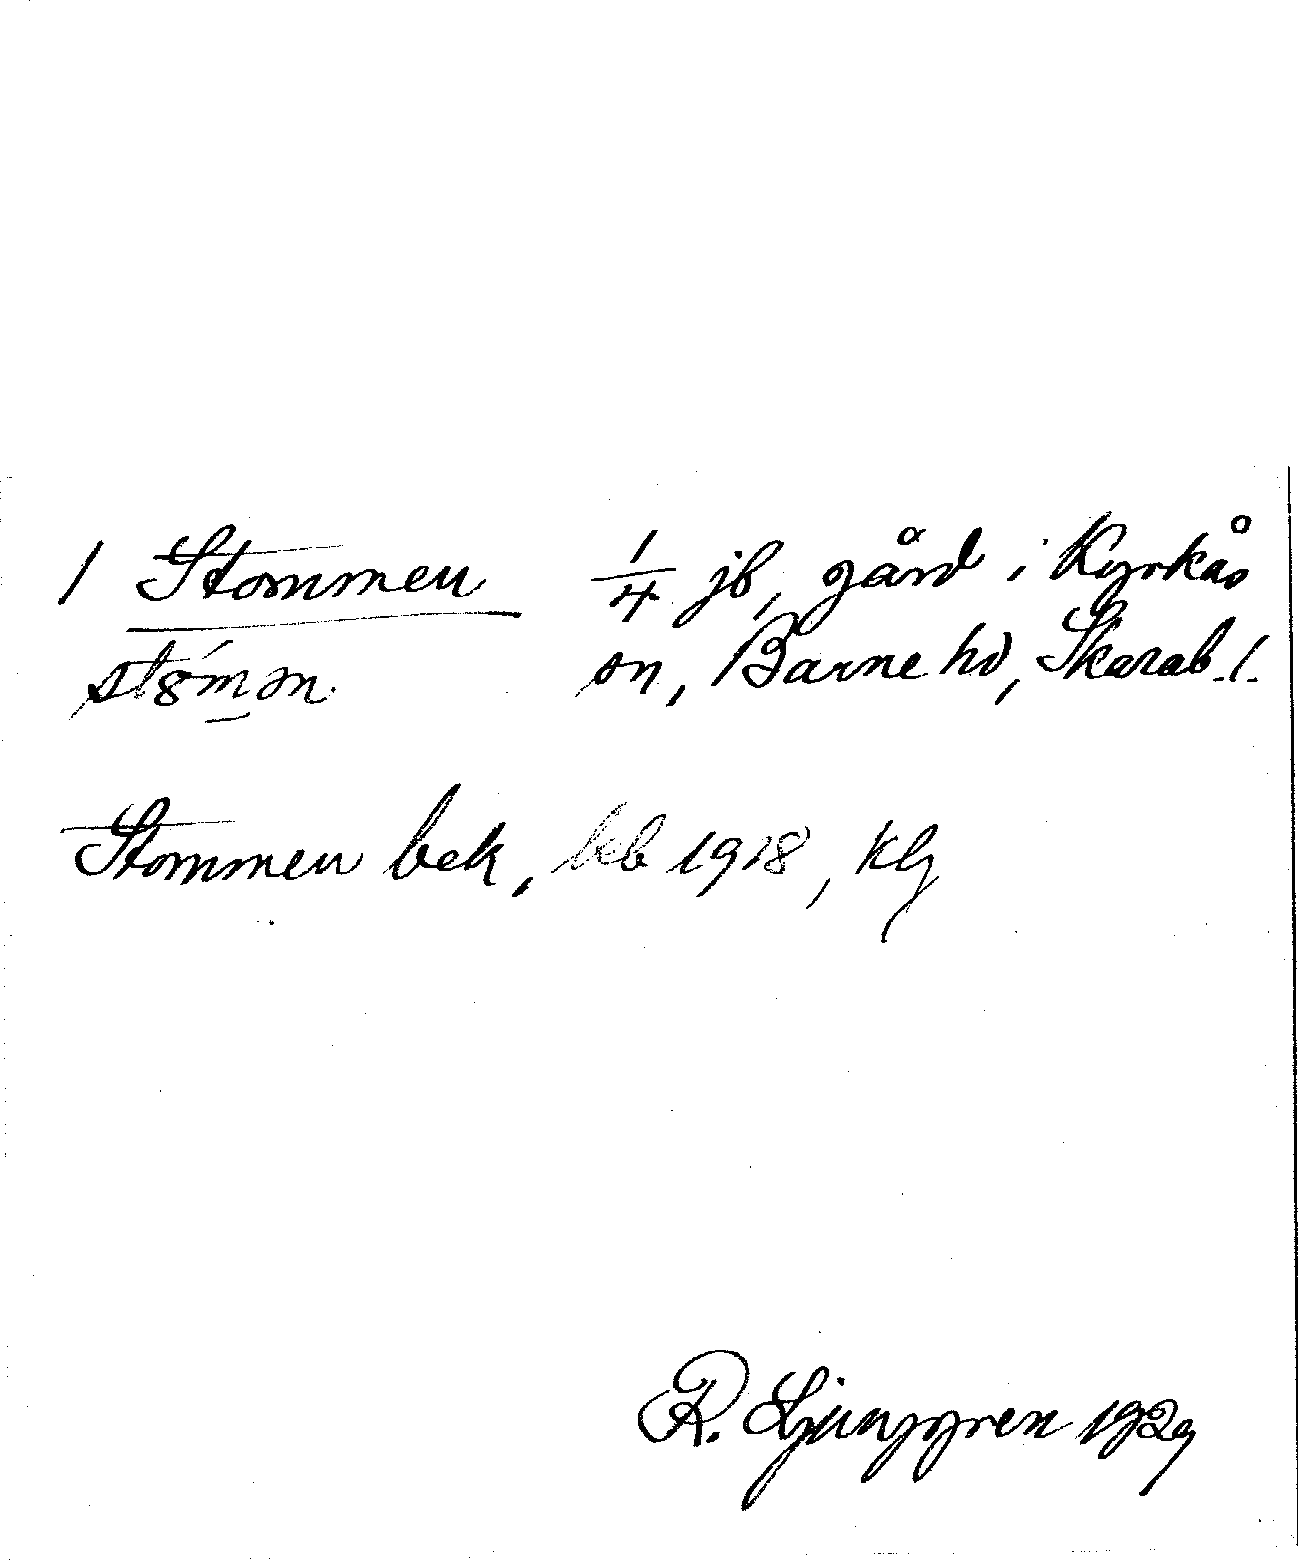 1 Stommen 1/4 jb, gård i Kyrkås
stǿmən sn, Barne hd, Skarab. l.
Stommen bek, kb 1918, klg
R. Ljunggren 1929